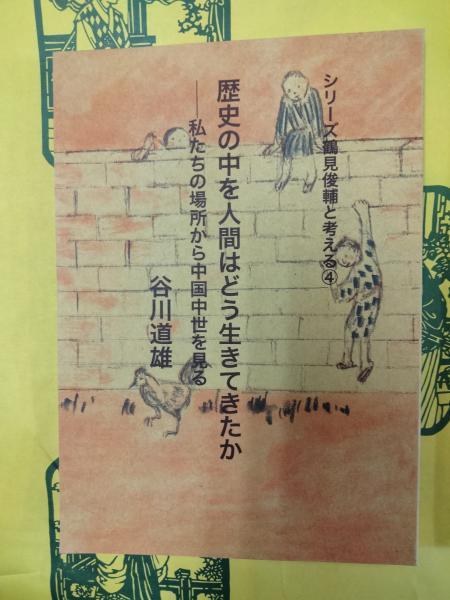 シリーズ鶴見俊輔と考える④
歴史の中を人間はどう生きてきたか
──私たちの場所から中国中世を見る
谷川道雄